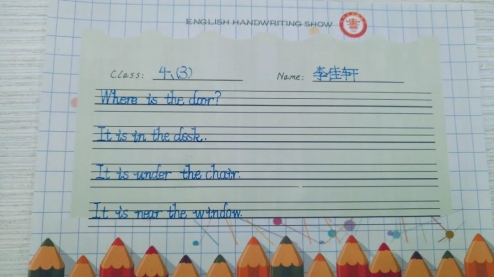 ENGLISH HANDWRITING SHOW
Class: 4、(3) Name: 李佳轩
Where is the door?
It is in the desk.
It is under the chair.
It is near the window.